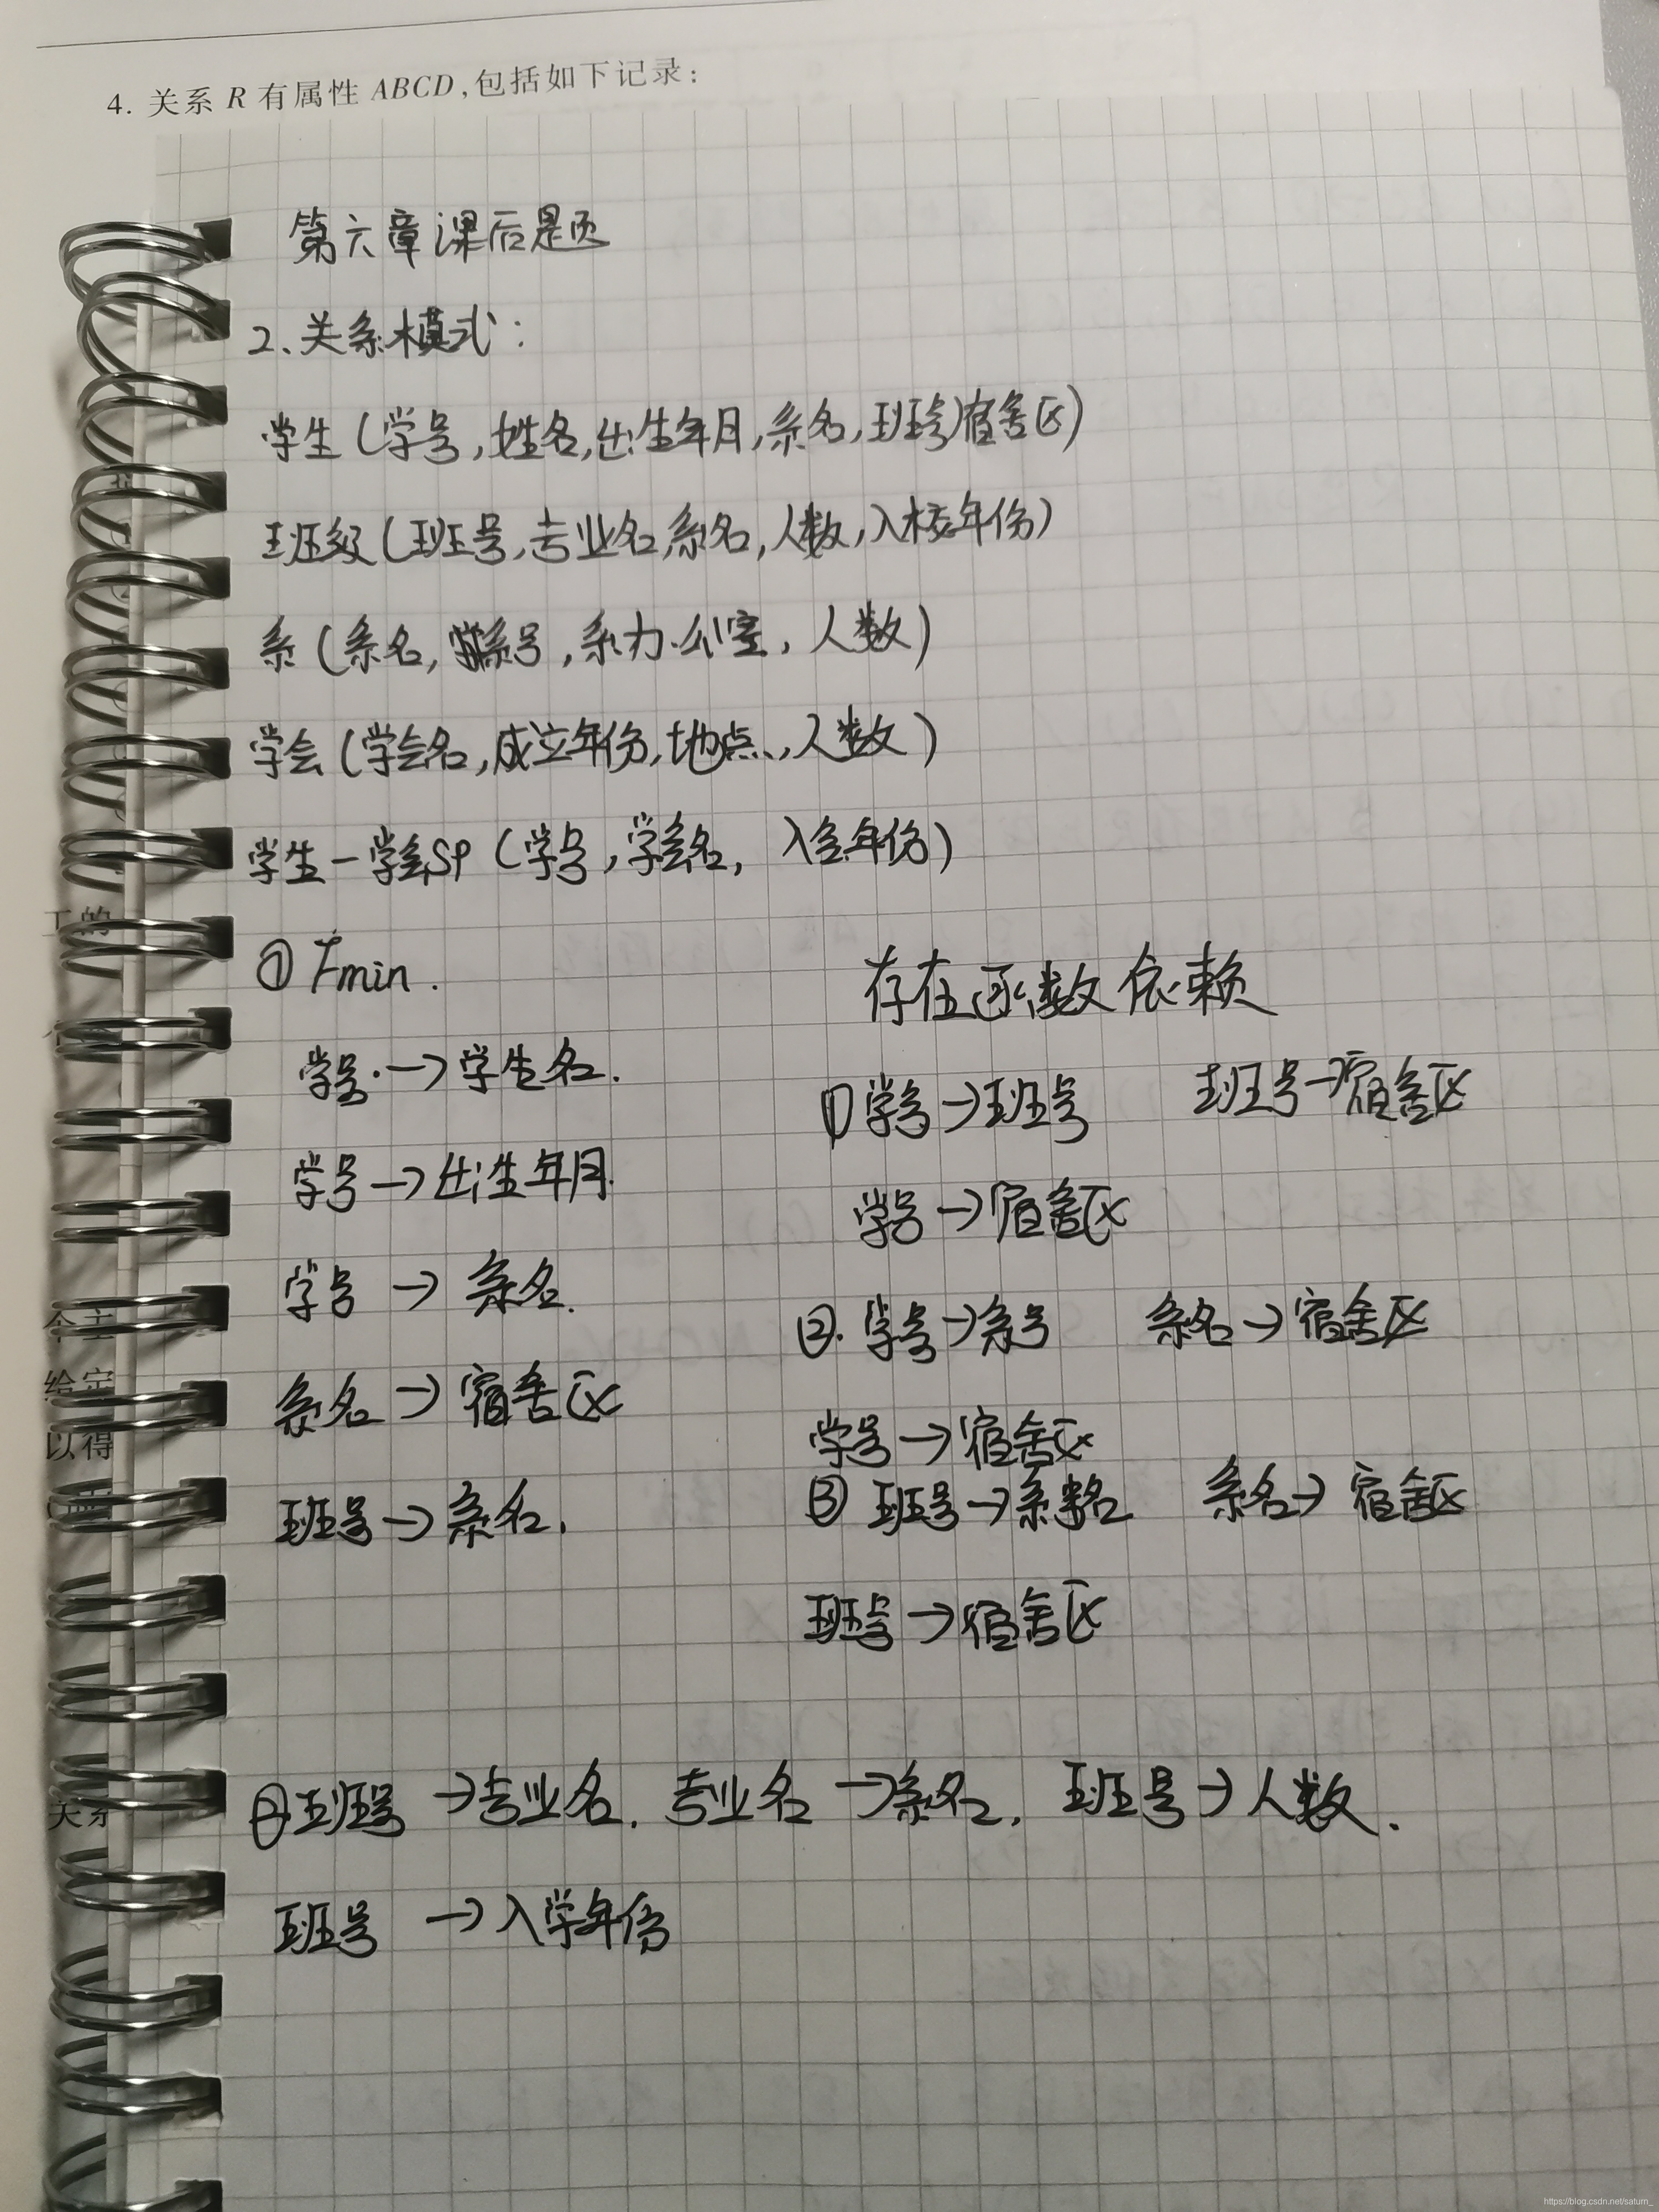 4. 关系 R 有属性 ABCD,包括如下记录:
第六章课后题
2、关系模式:
学生(学号,姓名,出生年月,系名,班号,宿舍区)
班级(班号,专业名,系名,人数,入校年份)
系(系名,系号,系办公室,人数)
学会(学会名,成立年份,地点,人数)
学生-学会SP(学号,学会名,入会年份)
① Fmin.
学号.→学生名.
学号→出生年月.
学号→系名.
系名→宿舍区
班号→系名.
存在函数依赖
①学号→班号 班号→宿舍区
学号→宿舍区
②.学号→系号 系名→宿舍区
学号→宿舍区
③班号→系名 系名→宿舍区
班号→宿舍区
②班号→专业名. 专业名→系名. 班号→人数.
班号→入学年份
工的
个主
给定
以得
关系
https://blog.csdn.net/saturn_